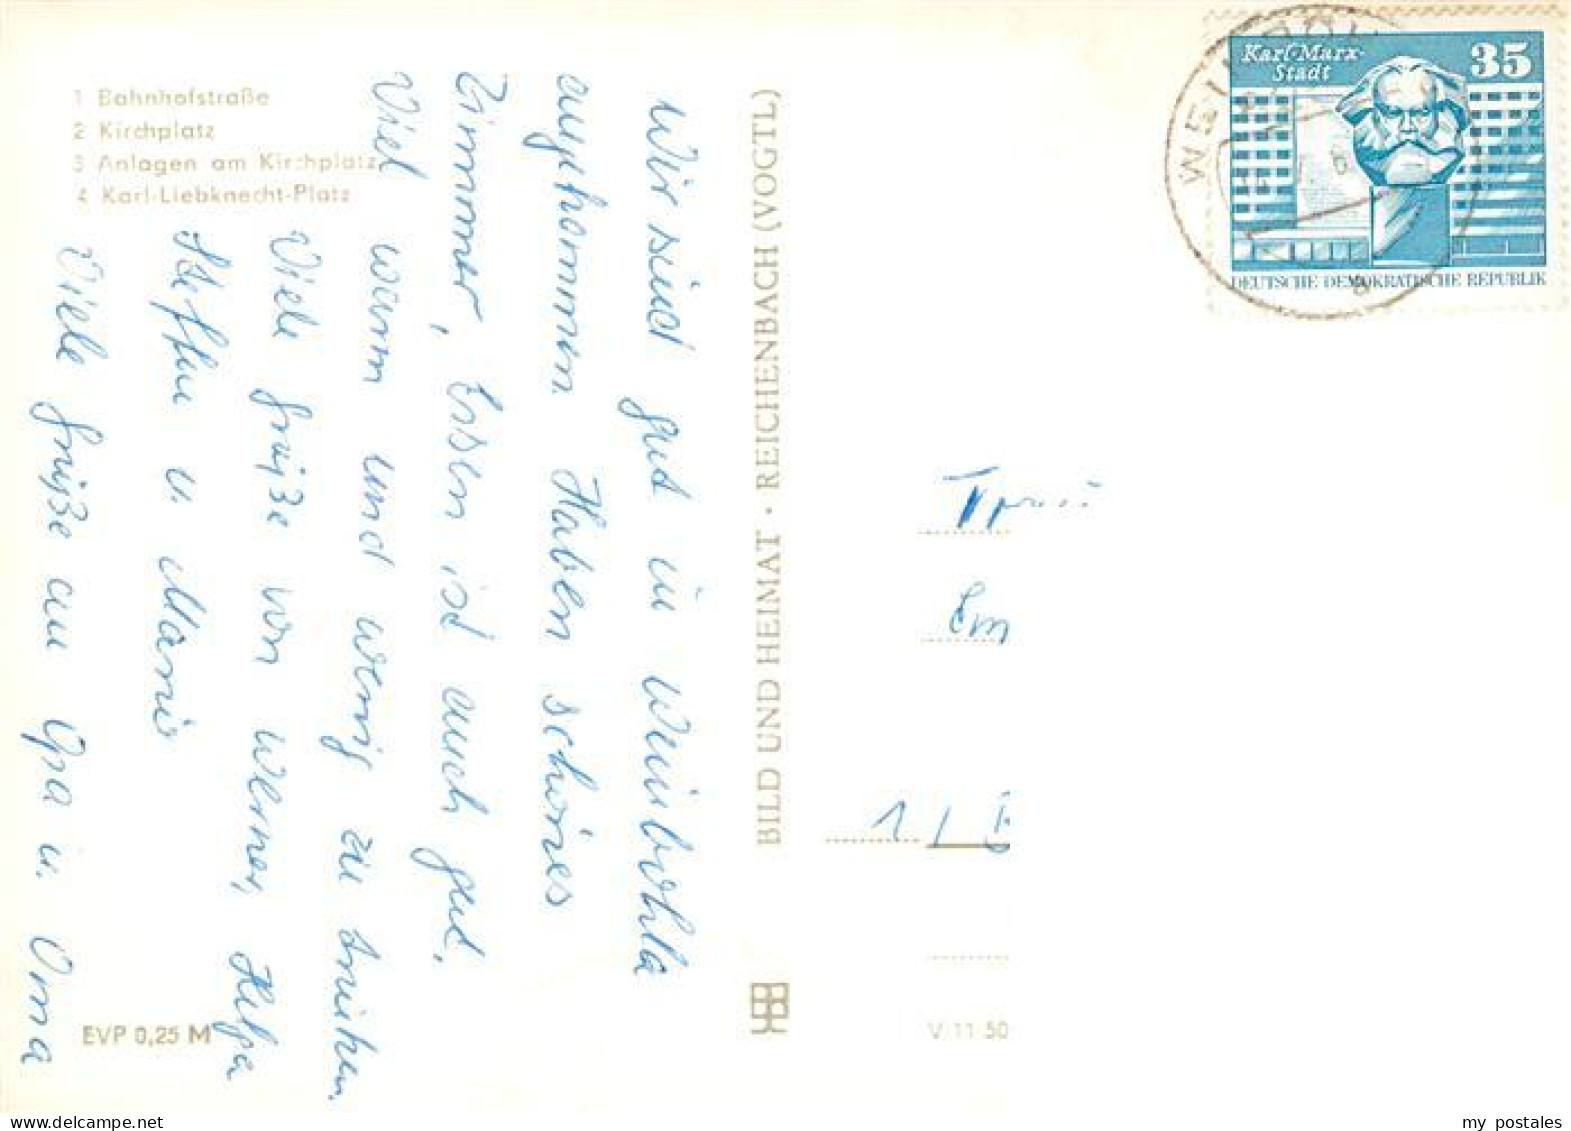 1 Bahnhofstraße
2 Kirchplatz
3 Anlagen am Kirchplatz
4 Karl-Liebknecht-Platz
Wir sind gut in Weinböhla
angekommen. Haben schönes
Zimmer, Essen ist auch gut.
Viel warm und wenig zu trinken.
Viele Grüße von Werner, Helga
Steffen u.
Viele Grüße an Opa u. Oma
EVP 0,25 M
BILD UND HEIMAT · REICHENBACH (VOGTL)
Karl-Marx-
Stadt
35
DEUTSCHE DEMOKRATISCHE REPUBLIK
V 11 50
my postales